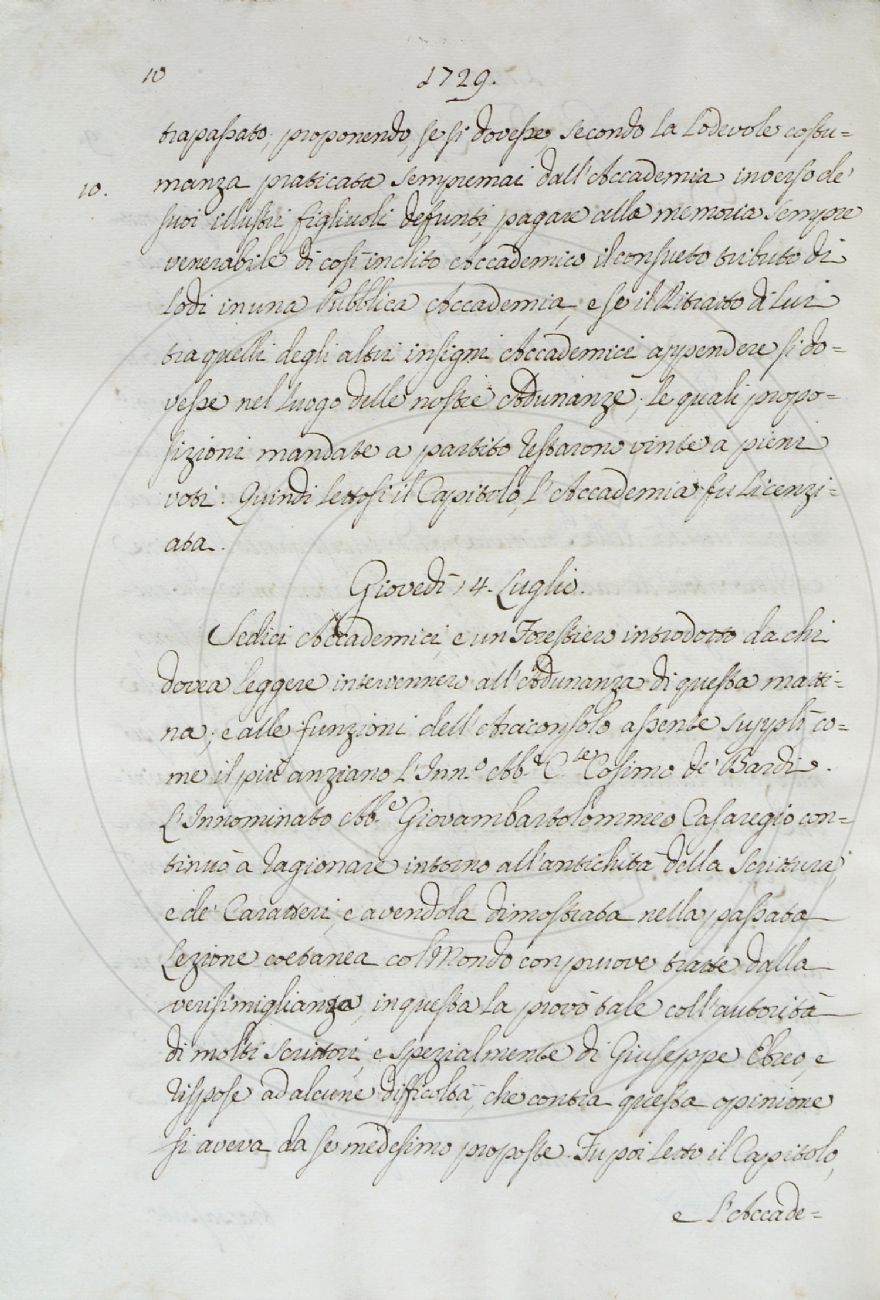 10
1729.
trapassato, proponendo, se si dovesse, secondo la lodevole costu=
10.
manza praticata sempremai dall'Accademia inverso de'
suoi illustri figliuoli defunti, pagare alla memoria sempre
venerabile di così inclito Accademico il consueto tributo di
lodi in una Pubblica Accademia, e se il Ritratto di Lui
tra quelli degli altri insigni Accademici appendere si do=
vesse nel luogo delle nostre Adunanze; le quali propo=
sizioni mandate a partito restarono vinte a pieni
voti. Quindi lettosi il Capitolo, l'Accademia fu licenzi=
ata.
Giovedì 14. Luglio.
Sedici Accademici, e un Forestiero introdotto da chi
dovea leggere intervennero all'Adunanza di questa matti=
na; e alle funzioni dell'Arciconsolo assente supplì co=
me il più anziano l'Inn.º Abb.e C.te Cosimo de' Bardi.
L'Innominato Abb.e Giovambartolommeo Casaregio con=
tinuò a ragionare intorno all'antichità della Scrittura,
e de' Caratteri, e avendola dimostrata nella passata
Lezione coetanea col Mondo con pruove tratte dalla
verisimiglianza, in questa la provò tale coll'autorità
di molti scrittori, e spezialmente di Giuseppe Ebreo, e
rispose ad alcune difficoltà, che contra questa opinione
si aveva da se medesimo proposte. Fu poi letto il Capitolo,
e l'Accade=